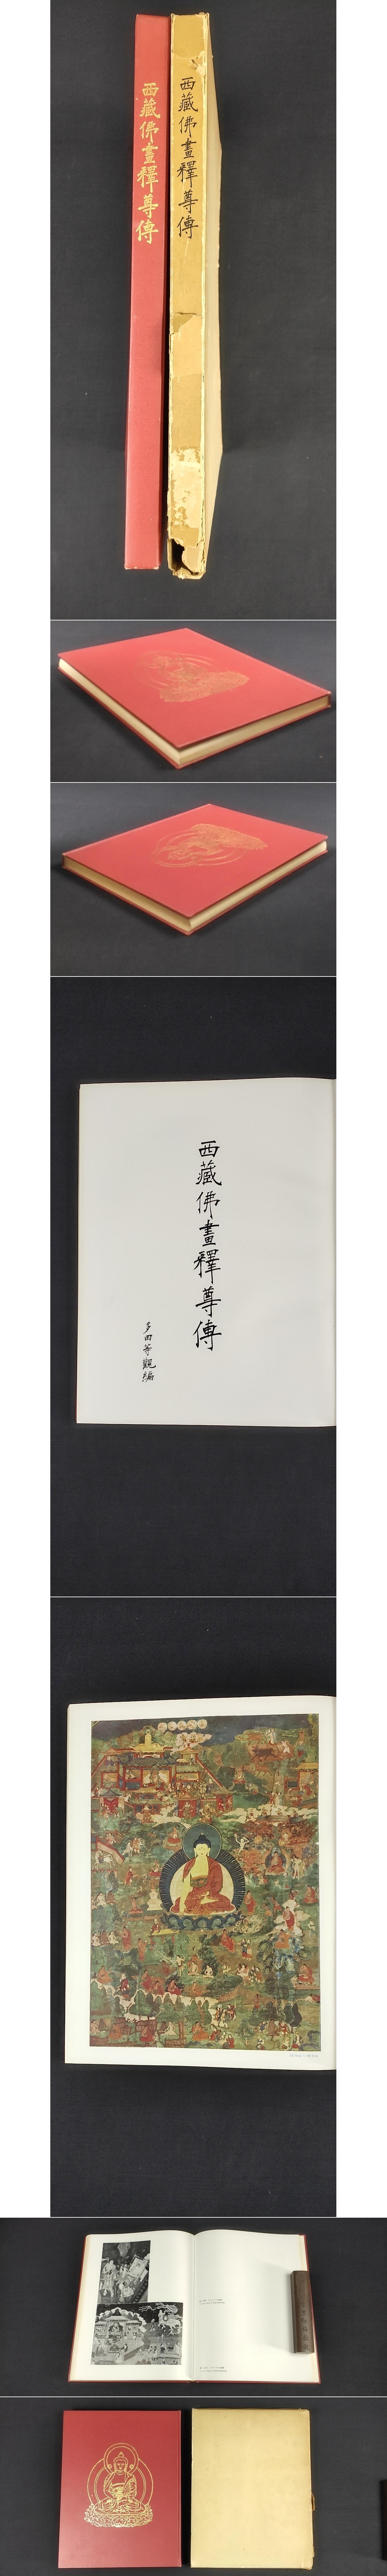 西藏佛畫釋尊傳
西藏佛畫釋尊傳
西藏佛畫釋尊傳
多田等觀編